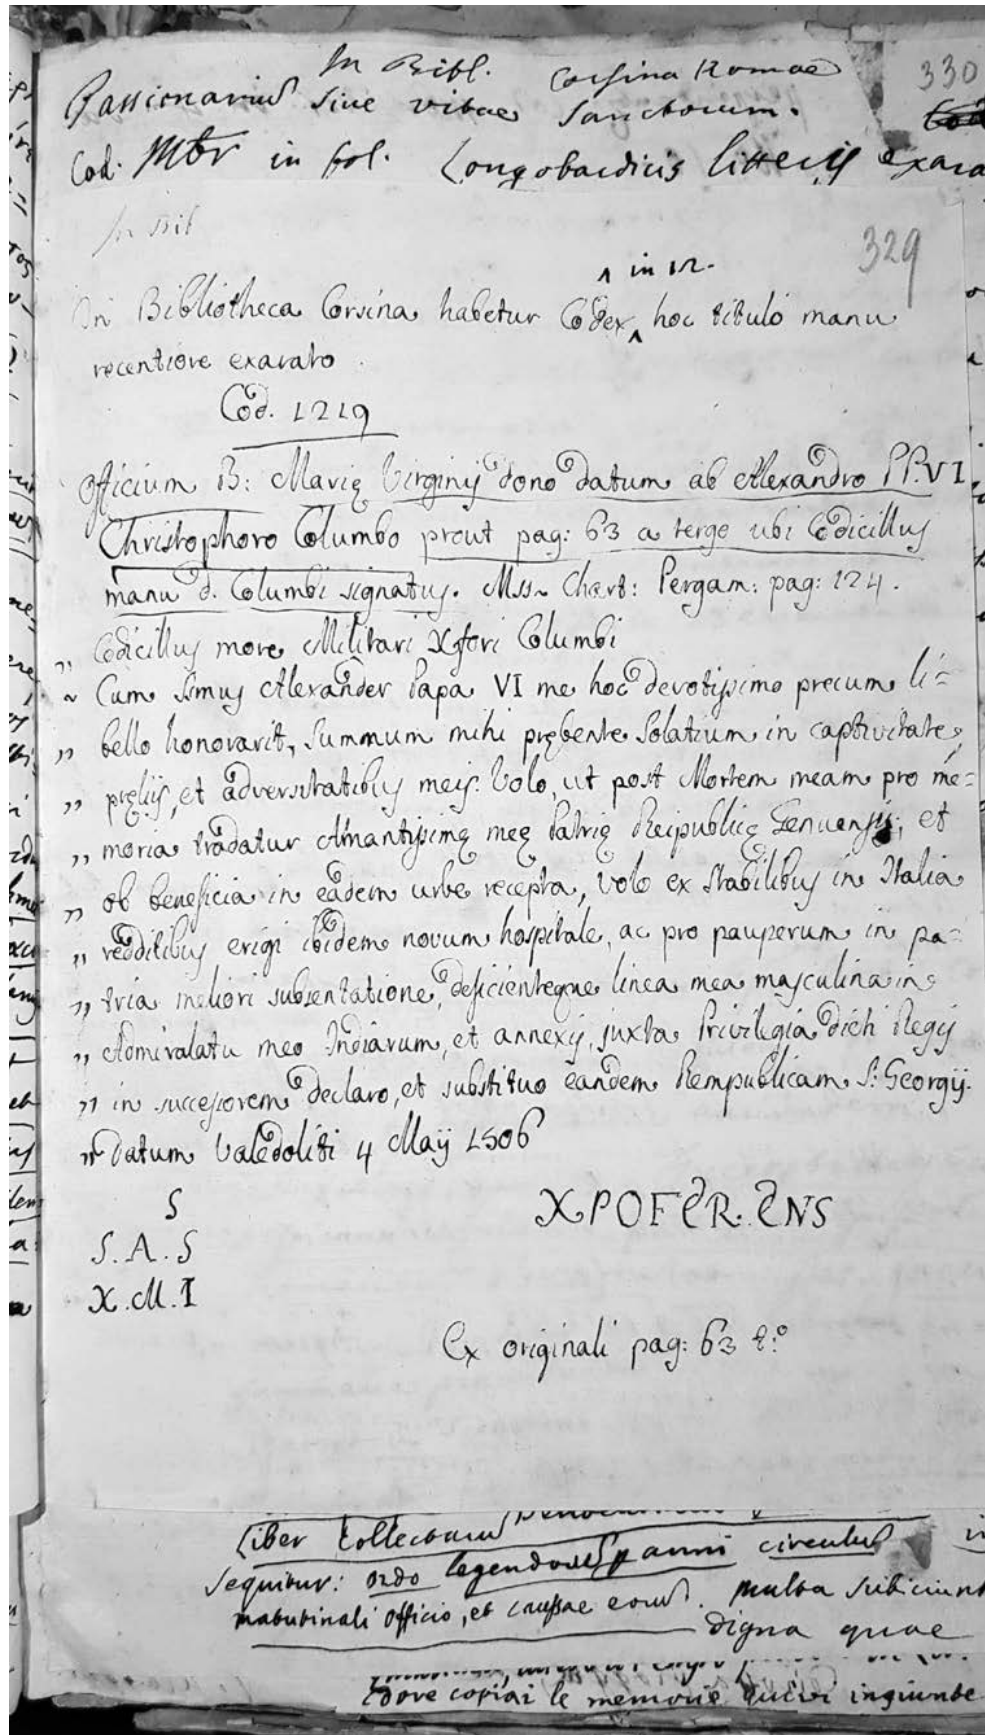 In Bibl. Corsina Romae
330
Passionariu͂ siue vitae Sanctorum.
Cod: Mbr in fol. Longobardicis litteris exara
In Bib
329
in 12.
In Bibliotheca Corsina habetur Codex hoc titulo manu
recentiore exarato
Cod. 1219
Officium B: Marię Virginis dono datum ab Alexandro PP. VI
Christophoro Columbo prout pag: 63 a tergo ubi Codicillus
manu d. Columbi signatus. Mss. Chart: Pergam: pag: 124.
„ Codicillus more Militari Xfori Columbi
„ Cum Smus Alexander Papa VI me hoc devotissimo precum li=
„ bello honoravit, summum mihi prębente solatium in captivitate,
„ pręliis, et adversitatibus meis. Volo, ut post Mortem meam pro me=
„ moria tradatur Amantissimę meę Patrię Reipublicę Genuensis; et
„ ob beneficia in eadem urbe recepta, volo ex stabilibus in Italia
„ redditibus erigi ibidem novum hospitale, ac pro pauperum in pa=
„ tria meliori subsentatione, deficienteque linea mea masculina in
„ Admiralatu meo Indiarum, et annexis, juxta Privilegia dicti Regis
„ in successorem declaro, et substituo eandem Rempublicam S: Georgij.
„ Datum Valedoliti 4 Maij 1506
S
S. A. S
X. M. I
XPOFER. ENS
Ex originali pag: 63 t:º
Liber Collectariu͂
sequitur: ordo legendoru͂ p anni circulu͂
matutinali officio, et caussae eoru͂. multa subiciunt
digna quae
dove copiai le memorie quivi ingiunte